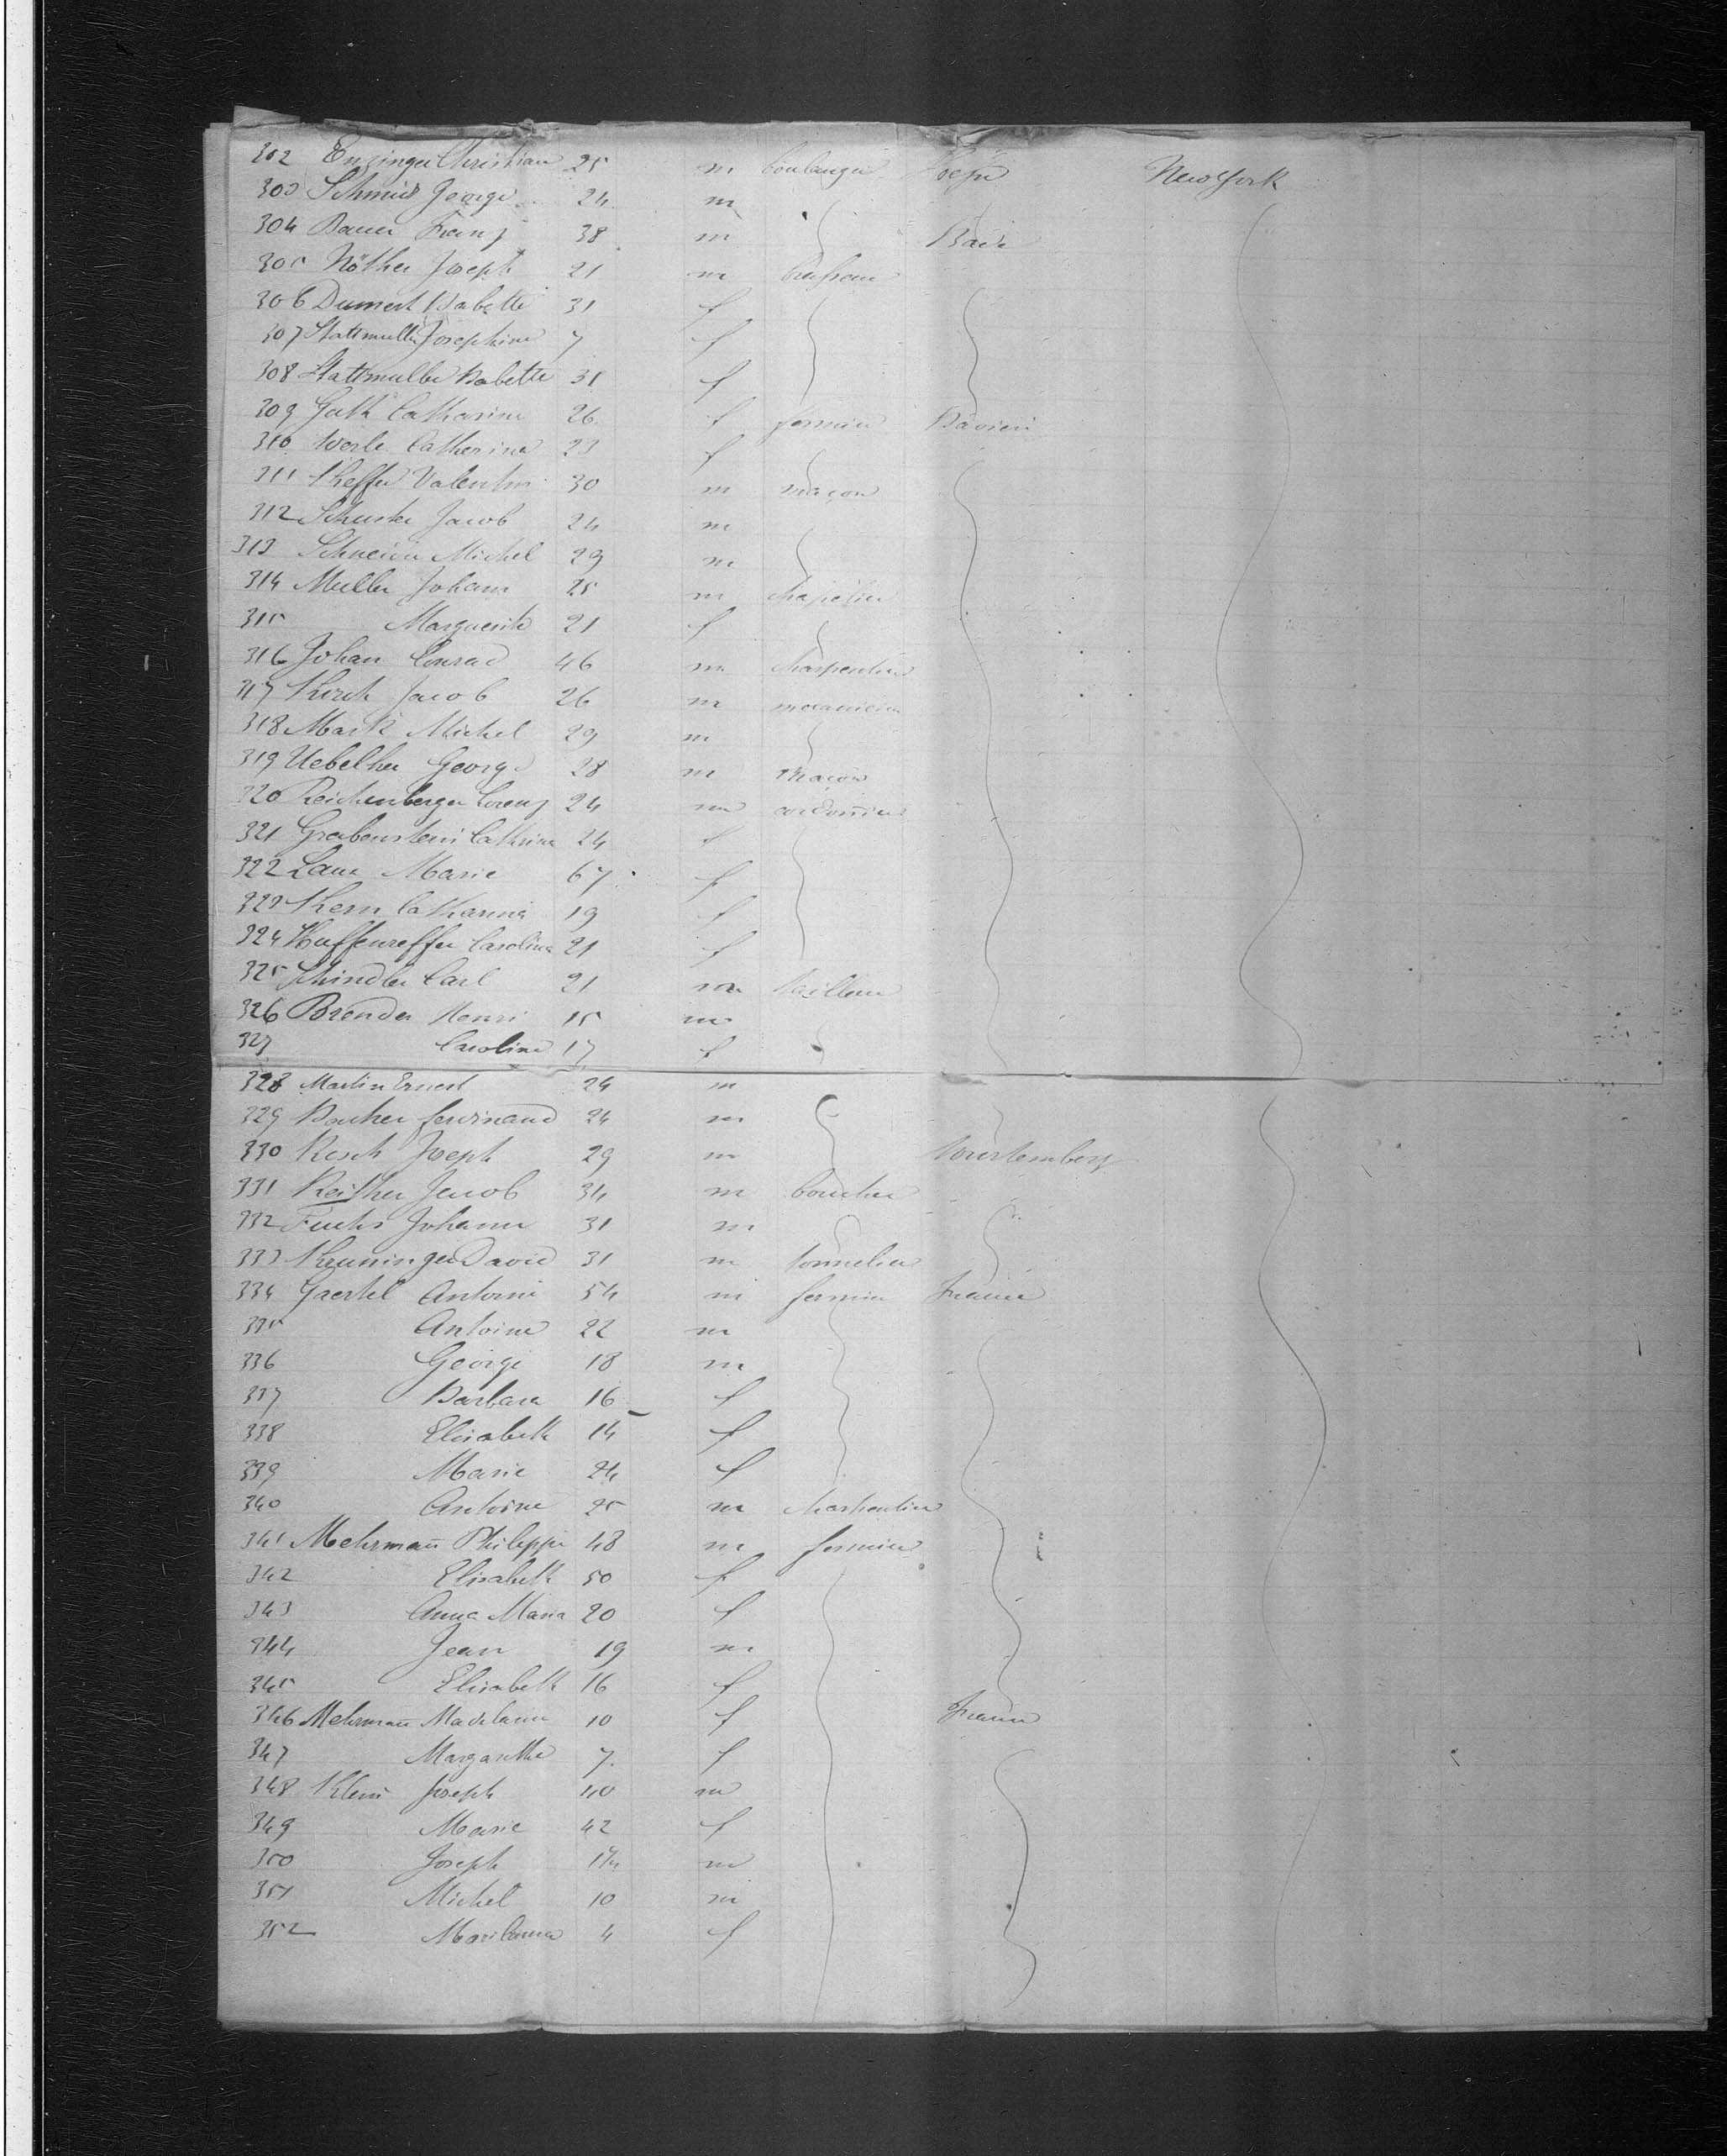 302 Enzinger Christian 25 m boulanger New York
303 Schmid George 24 m
304 Bauer Franz 38 m Bade
305 Nöther Joseph 21 m
306 Dumest Babette 31 f
307 Stattmuller Josephine 7 f
308 Stattmuller Babette 31 f
309 Guth Catharina 26 f fermier Bavière
310 Werle Catherina 23 f
311 Valentin 30 m maçon
312 Schuster Jacob 24 m
313 Schneider Michel 29 m
314 Muller Johann 25 m chapelier
315 Marguerite 21 f
316 Johan Conrad 46 m charpentier
317 Jacob 26 m mecanicien
318 Mark Michel 29 m
319 Uebelher George 28 m maçon
320 Reichenberger Lorenz 24 m cordonnier
321 Grabenstein Cathrina 24 f
322 Marie 67 f
323 Kern Catharina 19 f
324 Haffenreffer Carolina 21 f
325 Schindler Carl 21 m tailleur
326 Brender Henri 15 m
327 Caroline 17 f
328 Martin Ernest 24 m
329 Bacher ferdinand 24 m
330 Resch Joseph 29 m Wurtemberg
331 Reither Jacob 34 m boucher
332 Fuchs Johann 31 m
333 David 31 m tonnelier
334 Gaertel Antoine 54 m fermier France
335 Antoine 22 m
336 George 18 m
337 Barbara 16 f
338 Elisabeth 14 f
339 Marie 24 f
340 Antoine 25 m charpentier
341 Mehrman̄ Philippe 48 m fermier
342 Elisabeth 50 f
343 Anna Maria 20 f
344 Jean 19 m
345 Elisabeth 16 f
346 Mehrman̄ Madelaine 10 f France
347 Margarethe 7 f
348 Klein Joseph 40 m
349 Marie 42 f
350 Joseph m
351 Michel 10 m
352 Marianna 4 f